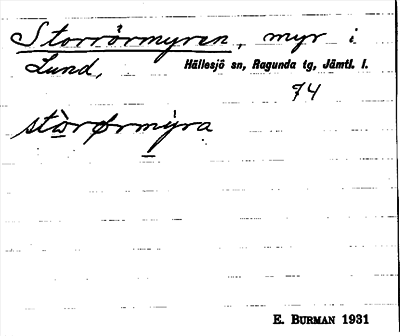 Storrörmyren, myr i
Lund, Hällesjö sn, Ragunda tg, Jämtl. l.
74
stòrørmýra
E. BURMAN 1931